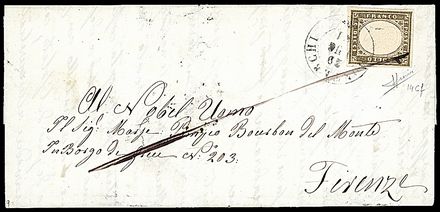 FRANCO
BOLLO
29
Al Nobil Uomo
Il Sig. Marse Bourbon del Monte
In Borgo N.º 203.
Firenze